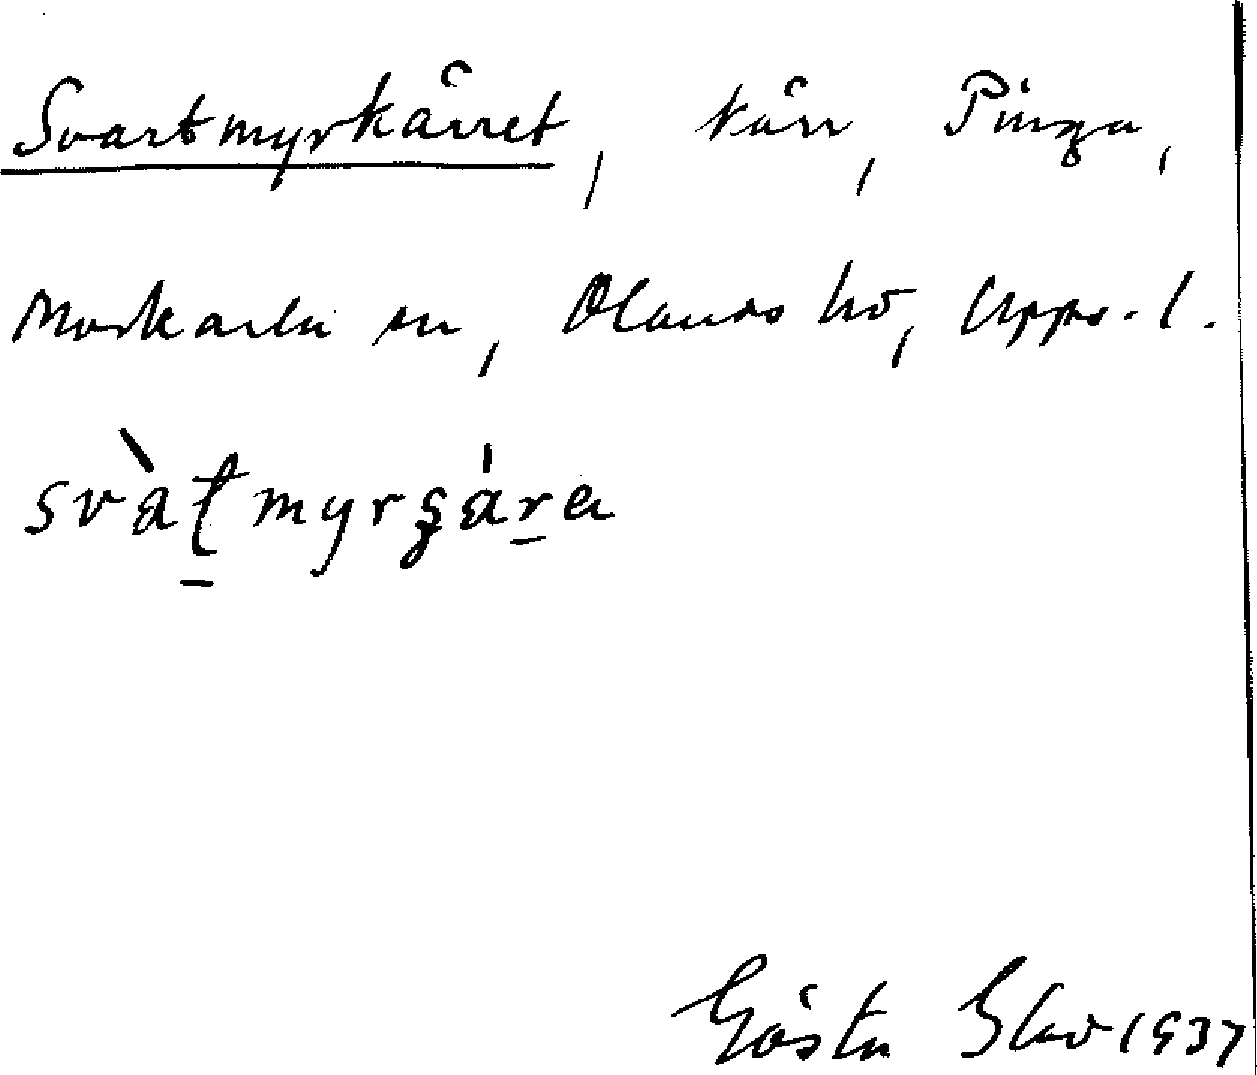 Svartmyrkärret, kärr, Pinga,
Morkarla sn, Olands hd, Upps. l.
svàt̠myrgár̠a
Gösta 1937